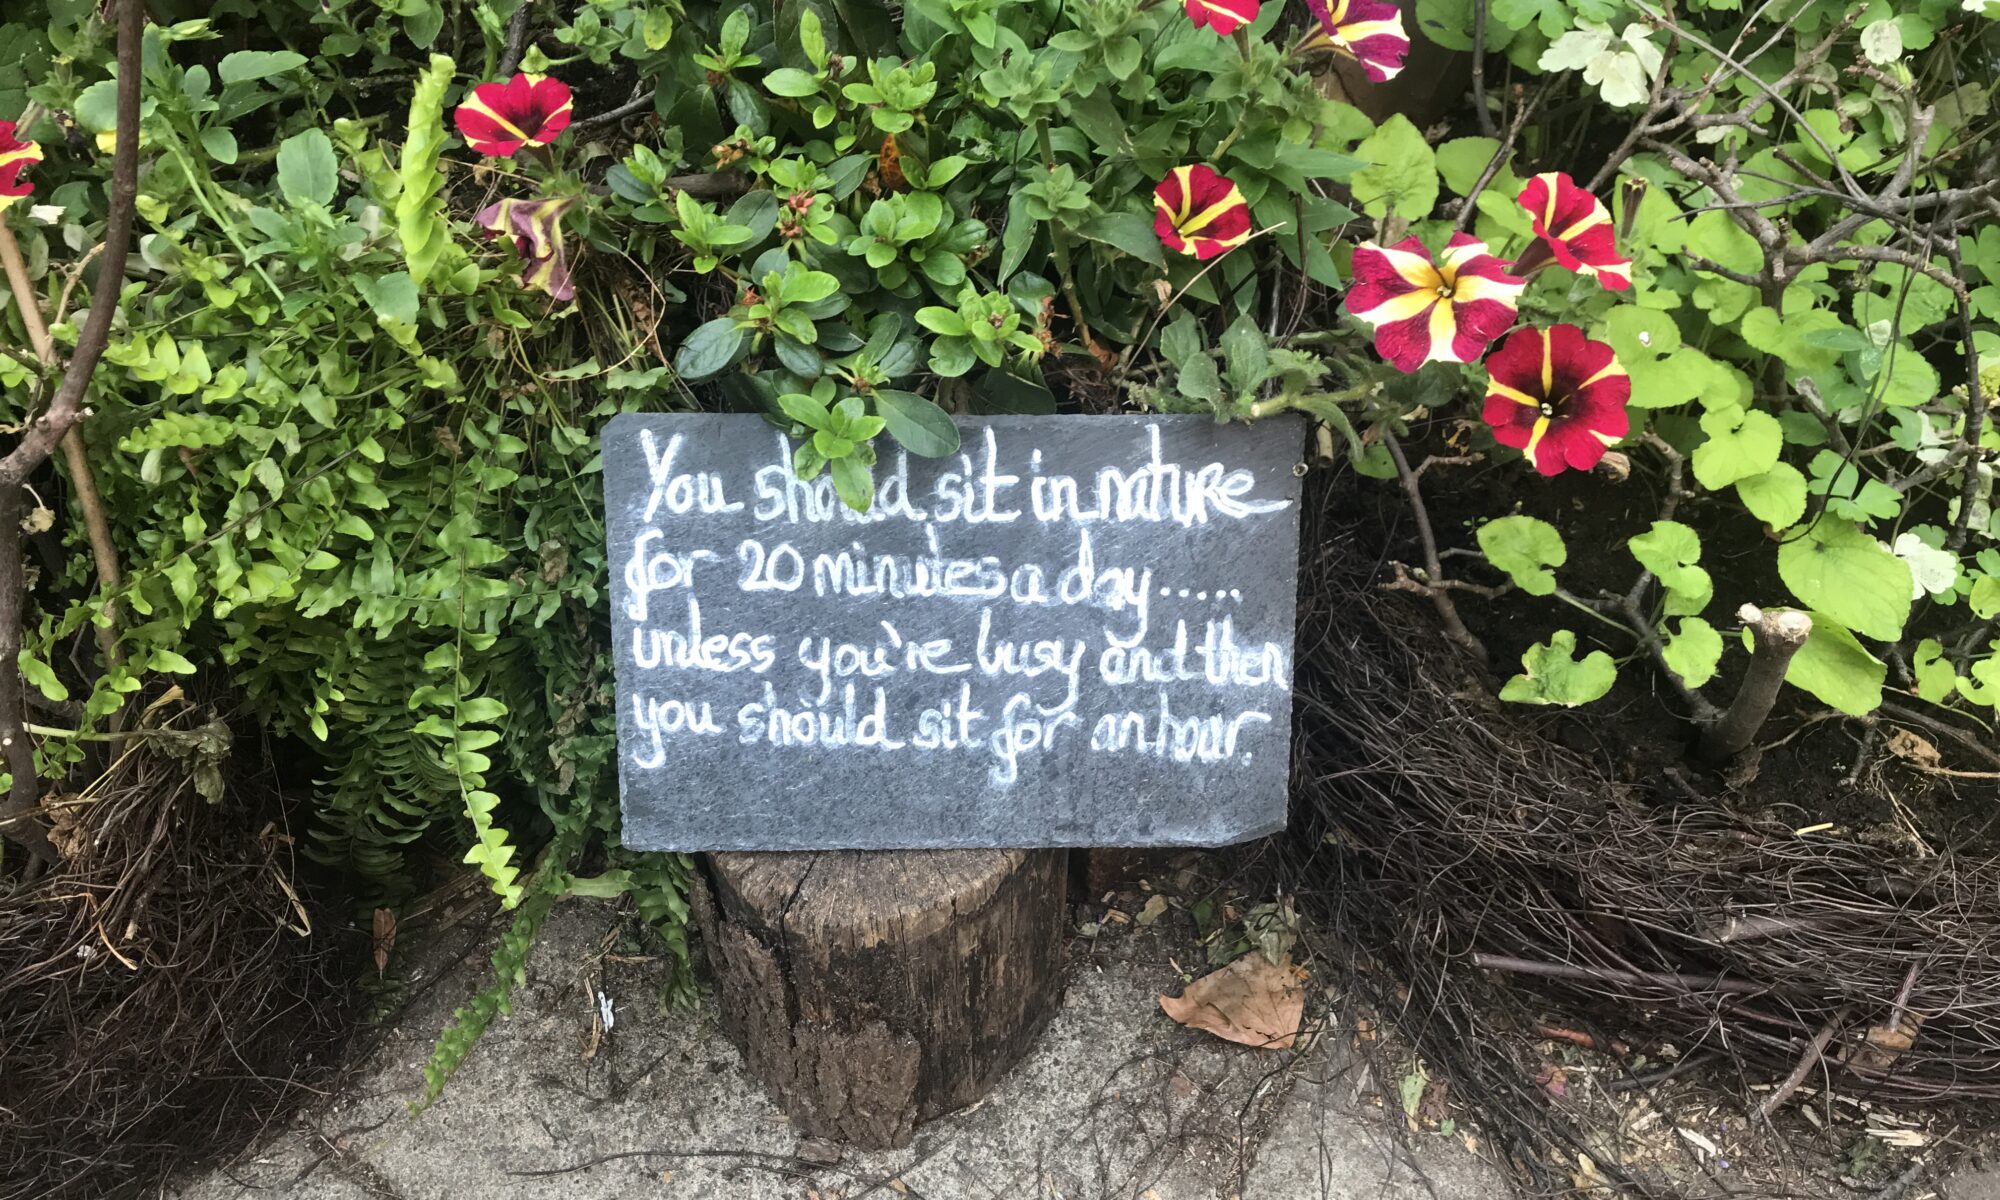 You should sit in nature
for 20 minutes a day.....
unless you're busy and then
you should sit for an hour.